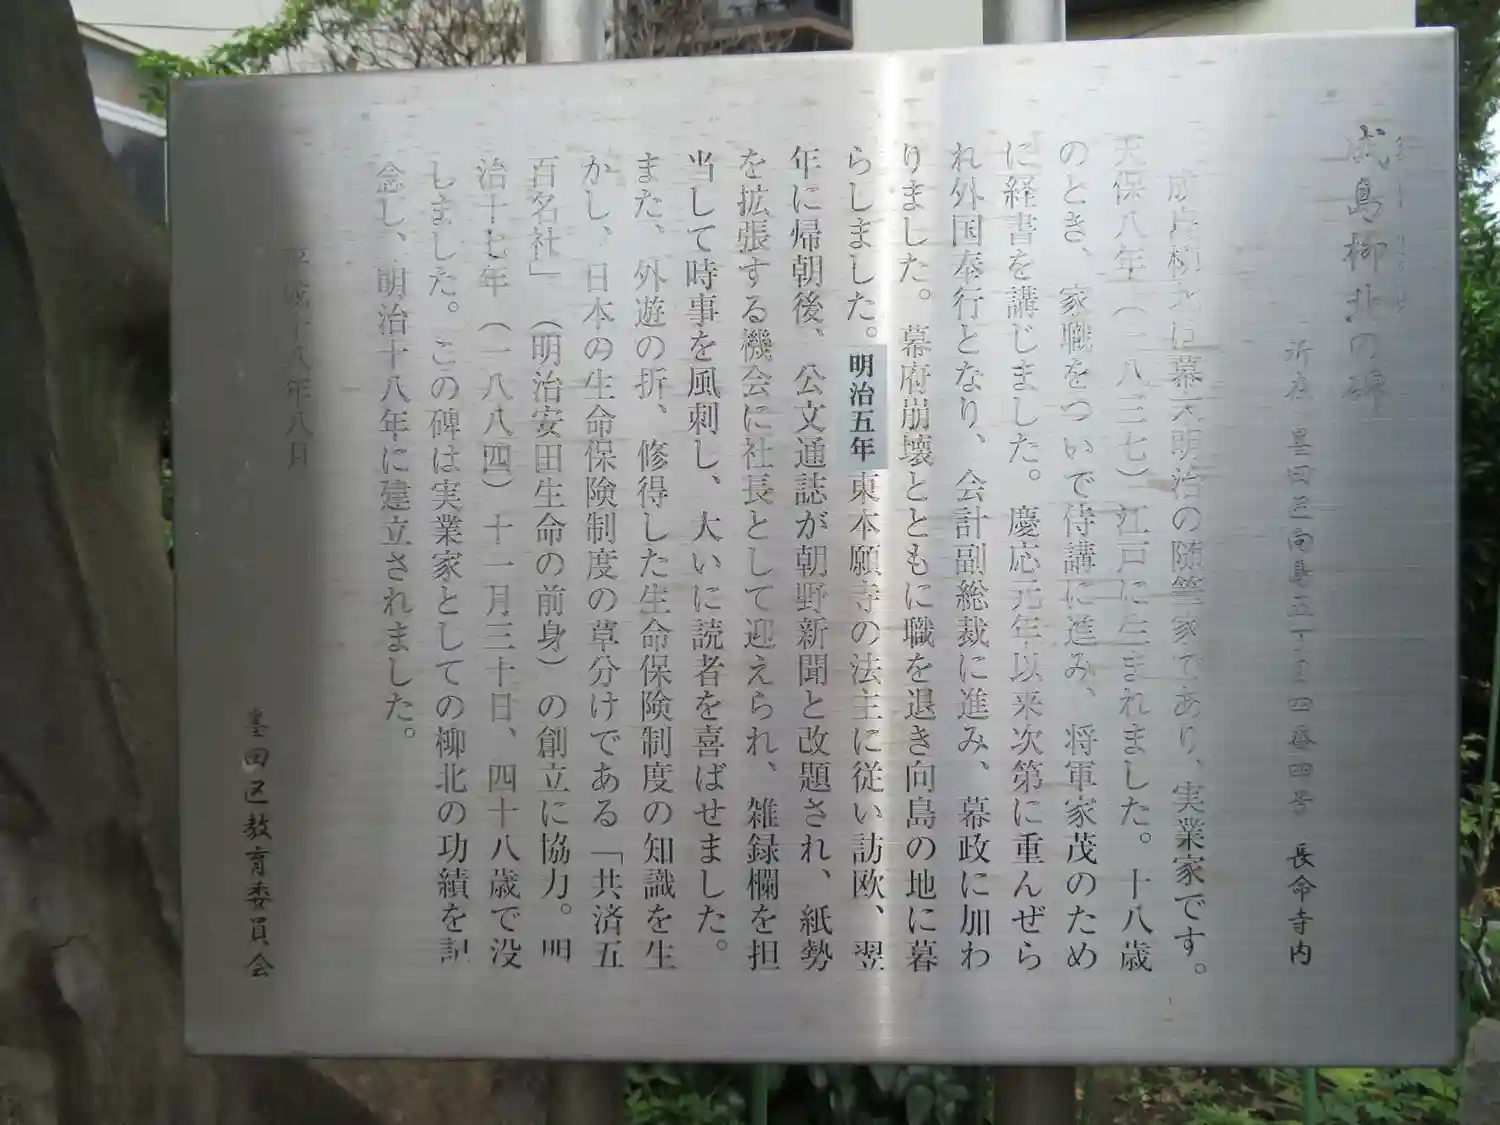 成島柳北の碑
所在 墨田区向島五丁目四番四号 長命寺内
成島柳北は幕末明治の随筆家であり、実業家です。
天保八年（一八三七）江戸に生まれました。十八歳
のとき、家職をついで侍講に進み、将軍家茂のため
に経書を講じました。慶応元年以来次第に重んぜら
れ外国奉行となり、会計副総裁に進み、幕政に加わ
りました。幕府崩壊とともに職を退き向島の地に暮
らしました。明治五年東本願寺の法主に従い訪欧、翌
年に帰朝後、公文通誌が朝野新聞と改題され、紙勢
を拡張する機会に社長として迎えられ、雑録欄を担
当して時事を風刺し、大いに読者を喜ばせました。
また、外遊の折、修得した生命保険制度の知識を生
かし、日本の生命保険制度の草分けである「共済五
百名社」（明治安田生命の前身）の創立に協力。明
治十七年（一八八四）十一月三十日、四十八歳で没
しました。この碑は実業家としての柳北の功績を記
念し、明治十八年に建立されました。
平成十八年八月
墨田区教育委員会